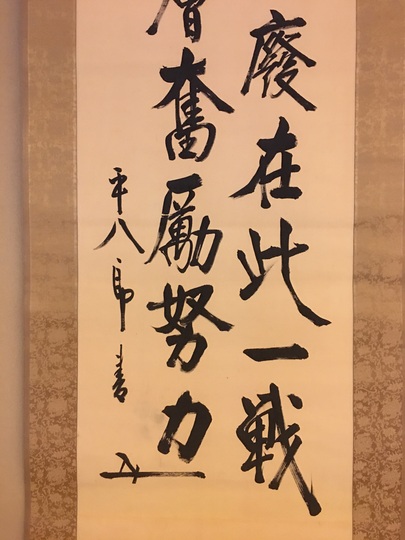 廢在此一戦
層奮勵努力
平八郎書